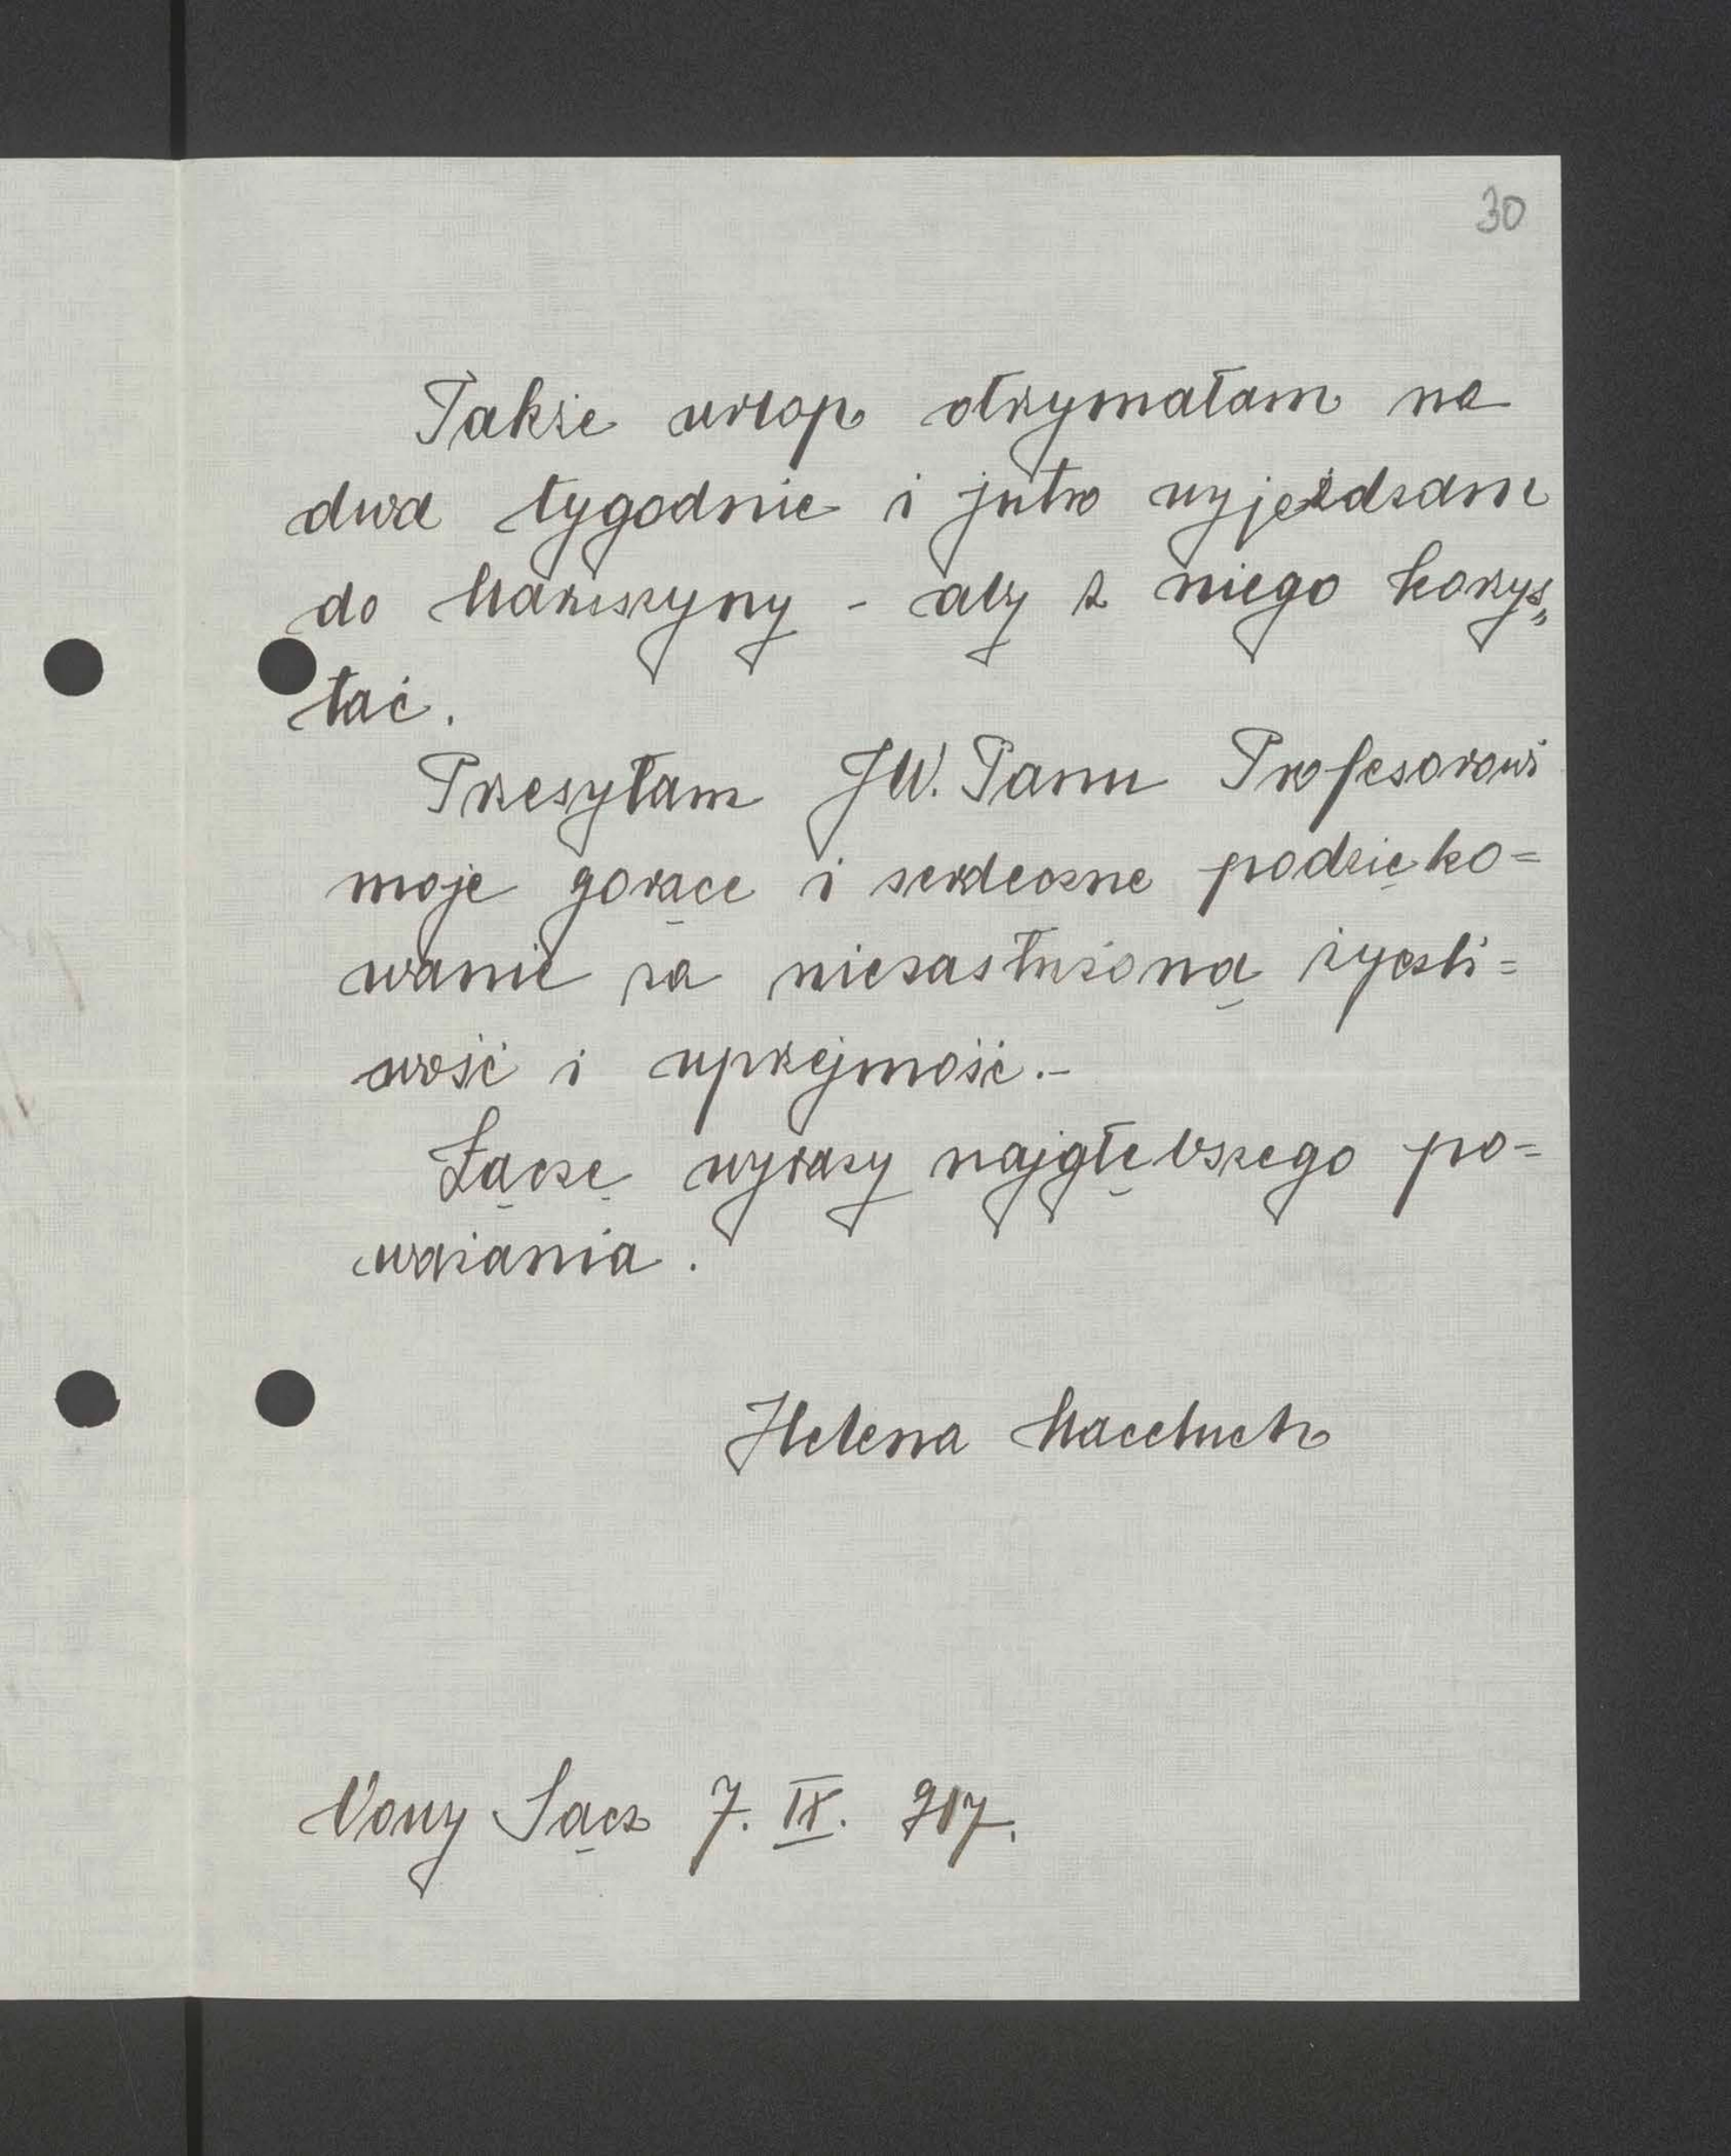 30
Także urlop otrzymałam na
dwa tygodnie i jutro wyjeżdzam
do Maxiszyny - aby z niego korzys„
tać.
Przesyłam JW. Panu Profesorowi
moje gorące i serdeczne podzięko=
wanie za niezasłużoną życzli=
wość i uprzejmość.-
Łączę wyrazy najgłębszego po=
ważania.
Helena Maceluch
Nowy Sącz 7. IX. 917.